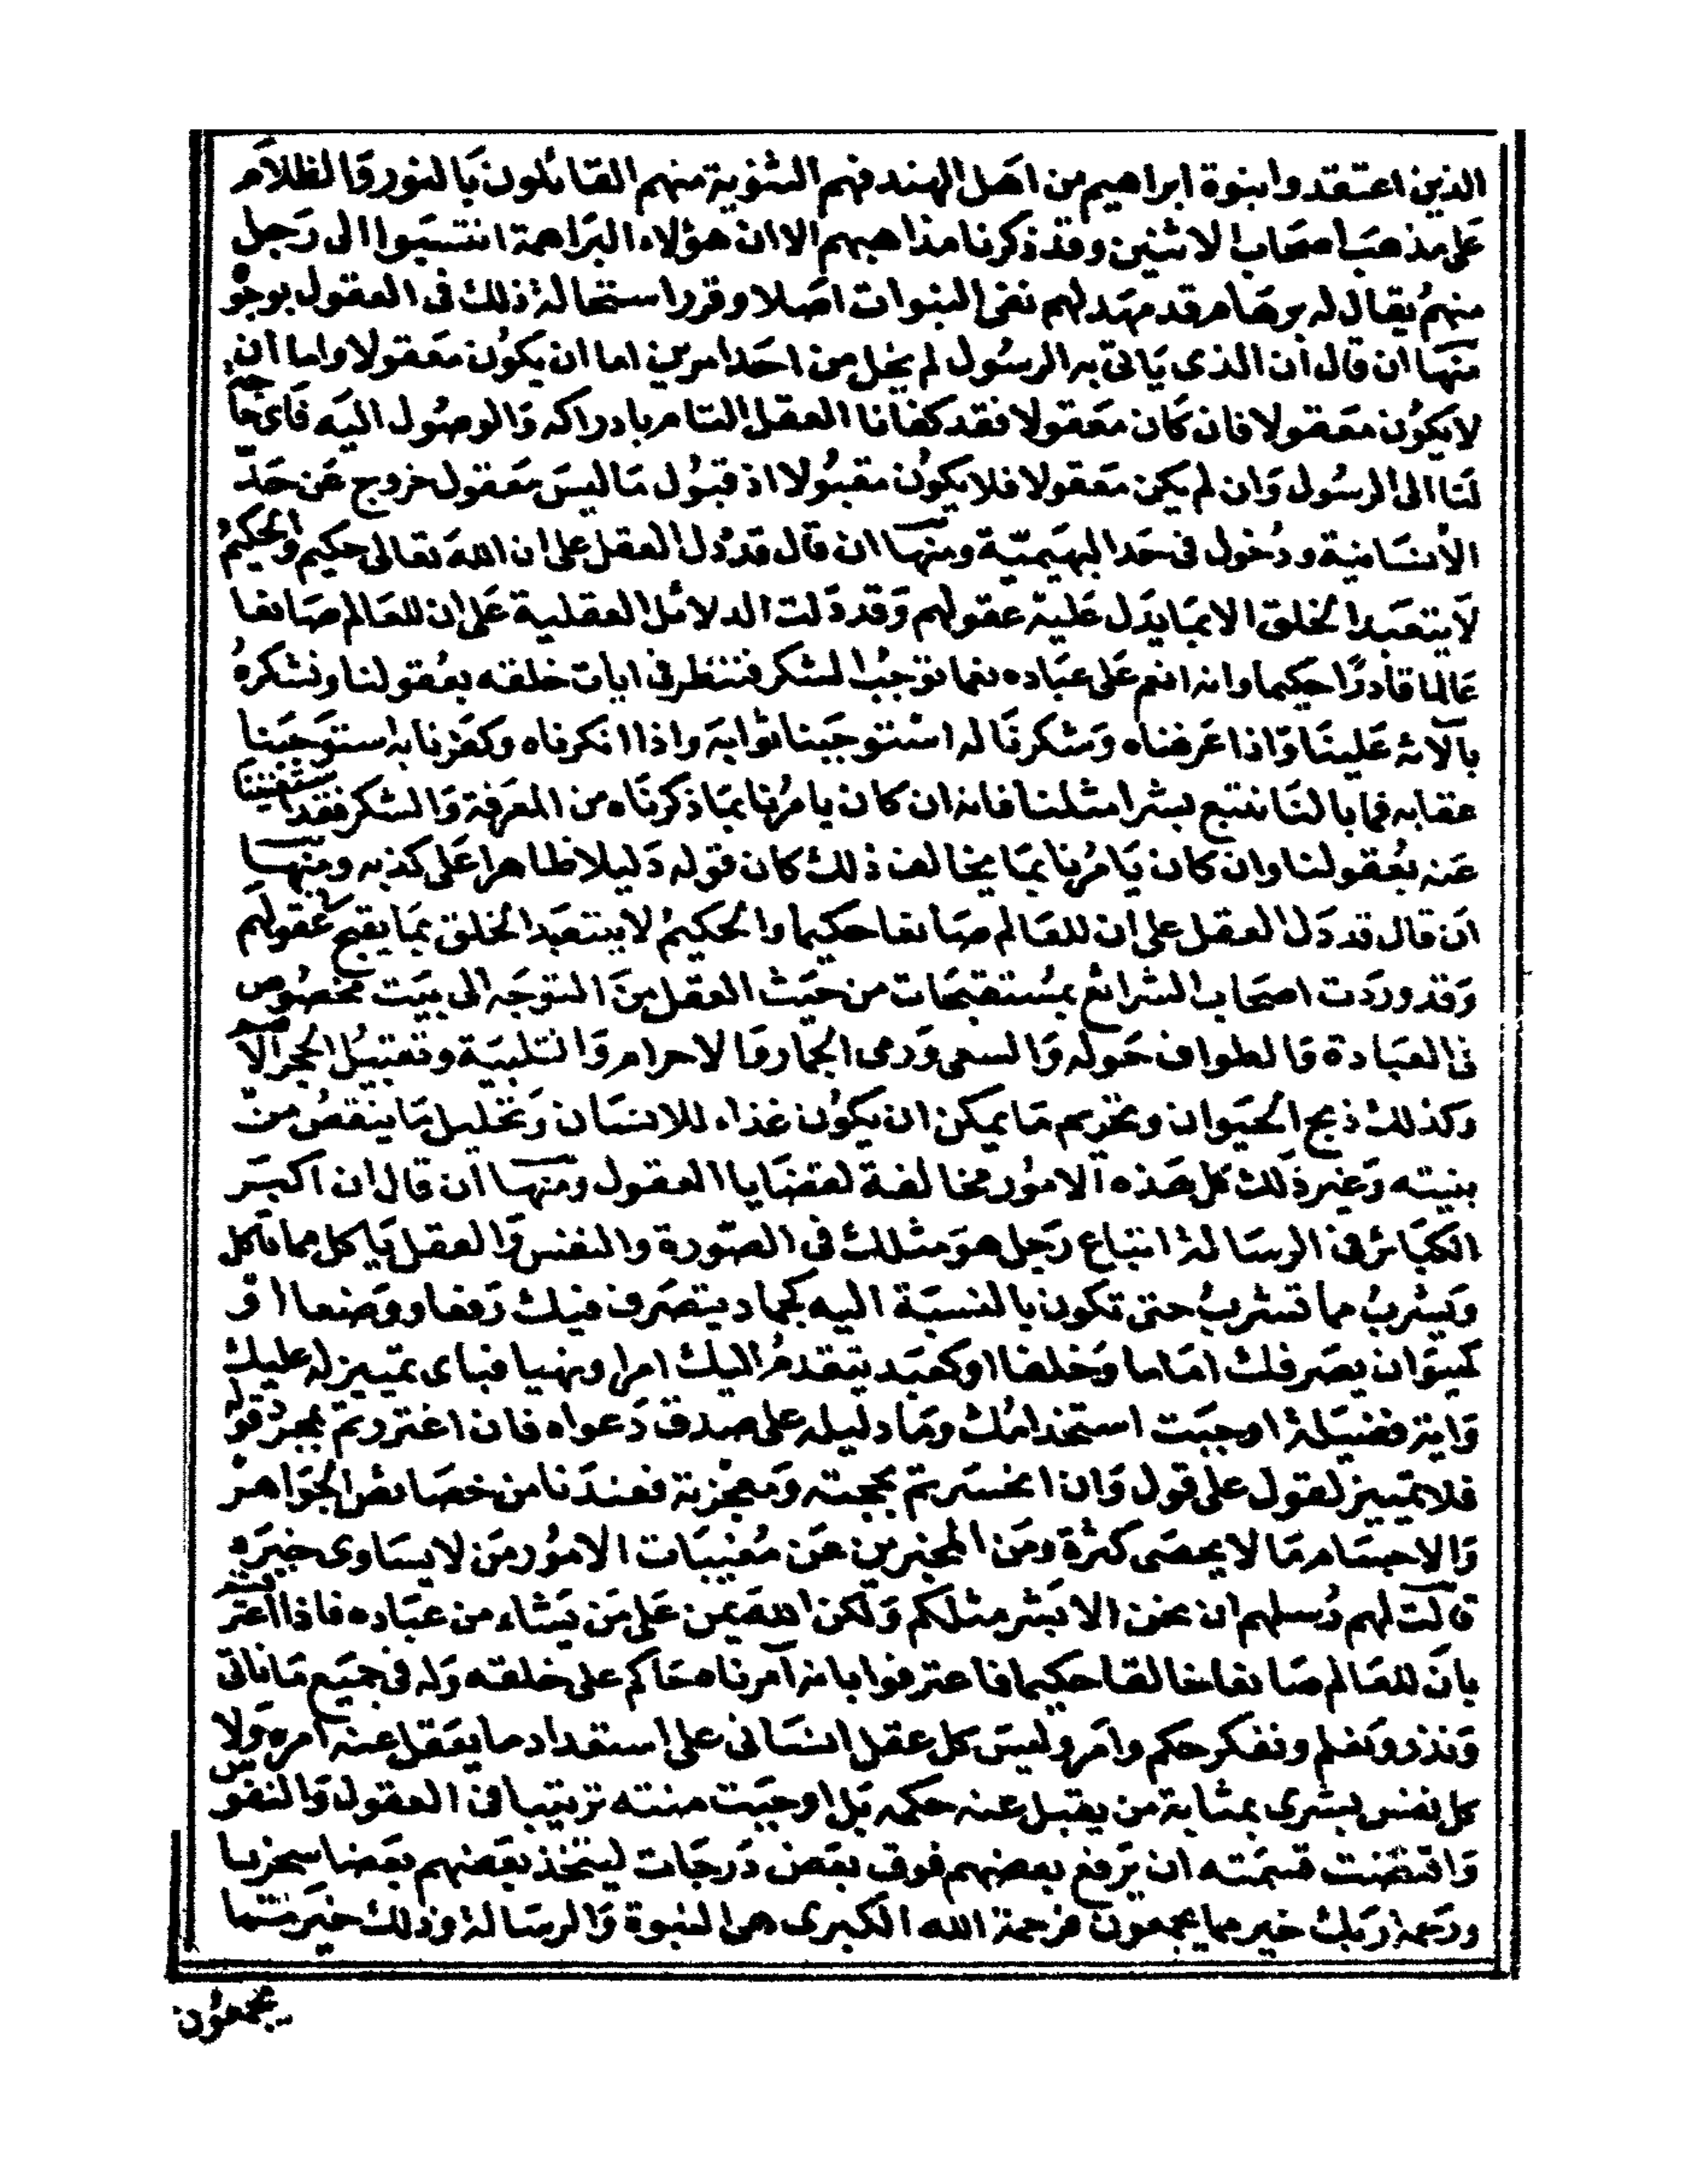 الذين اعتقدوا بنوة ابراهيم من اهل الهند فهم الثنوية منهم القائلون بالنور والظلام
على مذهب اصحاب الاثنين وقد ذكرنا مذاهبهم الا ان هؤلاء البراهمة انتسبوا الى رجل
منهم يقال له برهام قد مهد لهم نفى النبوات اصلا وقرر استحالة ذلك فى العقول بوجوه
منها ان قال ان الذى ياتى به الرسول لم يخل من احد امرين اما ان يكون معقولا واما ان
لا يكون معقولا فان كان معقولا فقد كفانا العقل التام بادراكه والوصول اليه فاى حاجة
لنا الى الرسول وان لم يكن معقولا فلا يكون مقبولا اذ قبول ما ليس معقول خروج عن حد
الانسانية ودخول فى حد البهيمية ومنها ان قال قد دل العقل على ان الله تعالى حكيم والحكيم
لا يتعبد الخلق الا بما يدل عليه عقولهم وقد دلت الدلائل العقلية على ان للعالم صانعا
عالما قادرا حكيما وانه انعم على عباده نعما توجب الشكر فننظر فى ايات خلقه بعقولنا ونشكره
بآلائه علينا واذا عرفناه وشكرنا له استوجبنا ثوابه واذا انكرناه وكفرنا به استوجبنا
عقابه فما بالنا نتبع بشرا مثلنا فانه ان كان يامرنا بما ذكرناه من المعرفة والشكر فقد استغنينا
عنه بعقولنا وان كان يامرنا بما يخالف ذلك كان قوله دليلا ظاهرا على كذبه ومنها
ان قال قد دل العقل على ان للعالم صانعا حكيما والحكيم لا يتعبد الخلق بما يقبح فى عقولهم
وقد وردت اصحاب الشرائع بمستقبحات من حيث العقل من التوجه الى بيت مخصوص
فى العبادة والطواف حوله والسعى ورمى الجمار والاحرام والتلبية وتقبيل الحجر الاصم
وكذلك ذبح الحيوان وتحريم ما يمكن ان يكون غذاء للانسان وتحليل ما ينقص من
بنيته وغير ذلك كل هذه الامور مخالفة لقضايا العقول ومنها ان قال ان اكبر
الكبائر فى الرسالة اتباع رجل هو مثلك فى الصورة والنفس والعقل ياكل مما تاكل
ويشرب مما تشرب حتى تكون بالنسبة اليه كجماد يتصرف فيك رفعا ووضعا او
كحيوان يصرفك اماما وخلفا او كعبد يتقدم اليك امرا ونهيا فباى تمييز له عليك
واية فضيلة اوجبت استخدامك وما دليله على صدق دعواه فان اغتررتم بمجرد قوله
فلا تمييز لقول على قول وان انحسرتم بحجته ومعجزته فعندنا من خصائص الجواهر
والاجسام ما لا يحصى كثرة ومن المخبرين عن مغيبات الامور من لا يساوى خبره
قالت لهم رسلهم ان نحن الا بشر مثلكم ولكن الله يمن على من يشاء من عباده فاذا اعترفتم
بان للعالم صانعا خالقا حكيما فاعترفوا بانه آمر ناه حاكم على خلقه وله فى جميع ما ناتى
ونذر ونعلم ونفكر حكم وامر وليس كل عقل انسانى على استعداد ما يعقل عنه امره ولا
كل نفس بشرى بمثابة من يقبل عنه حكمه بل اوجبت منته ترتيبا فى العقول والنفوس
واقتضت قسمته ان يرفع بعضهم فوق بعض درجات ليتخذ بعضهم بعضا سخريا
ورحمة ربك خير مما يجمعون فرحمة الله الكبرى هى النبوة والرسالة وذلك خير مما
يجمعون